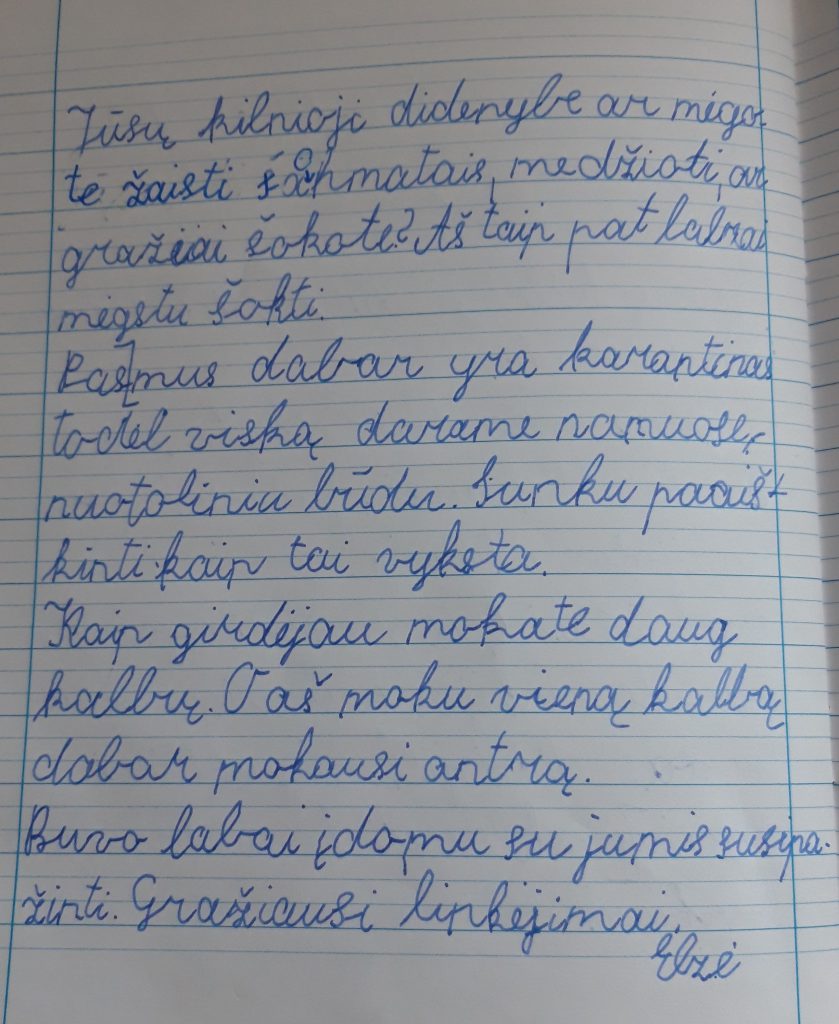 Jūsų kilnioji didenybe ar mėgo-
te žaisti šachmatais, medžioti, ar
gražiai šokote? Aš taip pat labai
mėgstu šokti.
Pas mus dabar yra karantinas
todėl viską darame namuose,
nuotoliniu būdu. Sunku paaiš-
kinti kaip tai vyksta.
Kaip girdėjau mokate daug
kalbų. O aš moku vieną kalbą
dabar mokausi antrą.
Buvo labai įdomu su jumis susipa-
žinti. Gražiausi linkėjimai.
Elzė